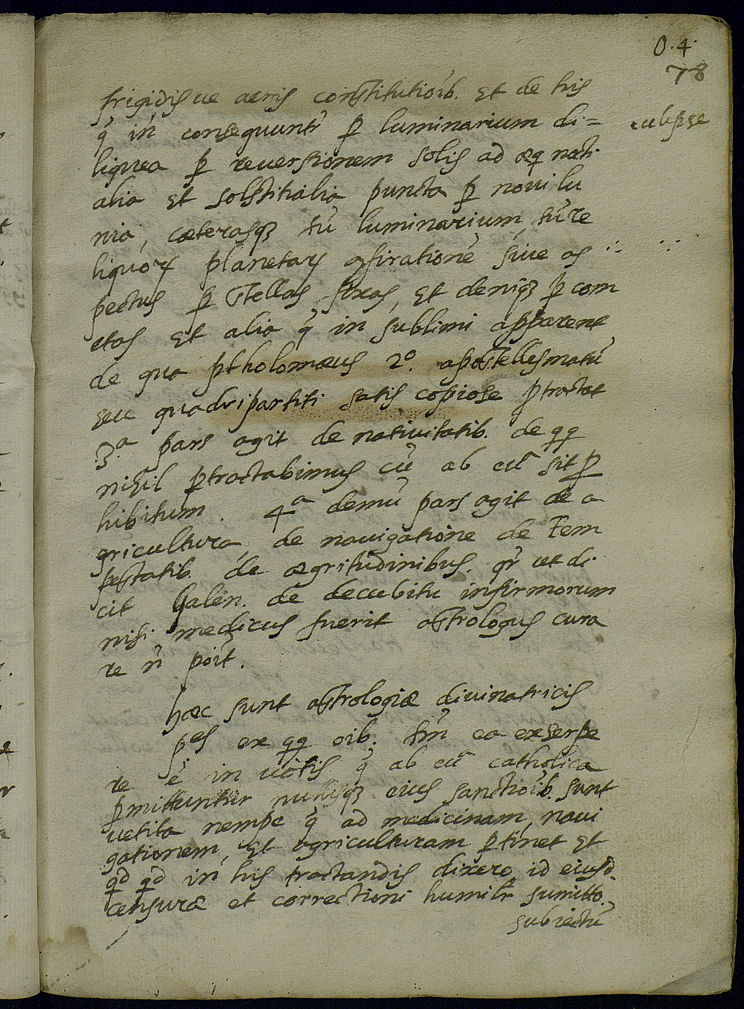 O. 4.
78
frigidisue aeris constitutioib. Et de his
q̃ in consequunt̃ p̃ luminarium di=
eclipse
liquea p̃ reuersionem solis ad æq nati
alia et solstitialia puncta p̃ noui lu
nia, cæterasq3 tũ luminarium, tũ re
liquoꝝ planetaꝝ gsirationẽ siue as
pectus p̃ stellas fixas, Et deniq3 p̃ com
etas Et alia q̃ in sublimi apparent
de qua ptholomæus 2º. apostellesmatũ
seu quadripartiti satis copiose ptractat
3.ª pars agit de natiuitatib. de qq
nihil ptractabimus cũ ab eccl̃ sit p
hibitum. 4ª demũ pars agit de a
gricultura, de nauigatione de tem
pestatib. de ægritudinibus. qr̃ ut di
cit Galen. de decubitu infirmorum
nisi medicus fuerit astrologus cura
re ñ poit̃.
hæc sunt astrologiæ diuinatricis
ptes ex qq oib. tm̃ ea exserpe
re ẽ in uotis q̃ ab eccl̃ catholica
pmittuntur nullisq3 eius sanctioib. sunt
uetita nempe q̃ ad medicinam, naui
gationem, Et agriculturam ptinet Et
qd qd in his tractandis dixero id eiusd.
censuræ et correctioni humilr̃ sumitto.
subiectũ